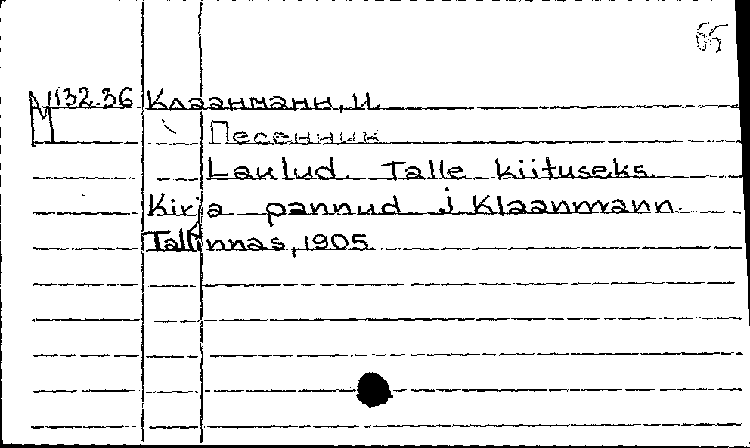 65
M 132.36 Клаанманн, И.
Песенник
Laulud. Talle kiituseks.
Kirja pannud J. Klaanmann.
Tallinnas, 1905